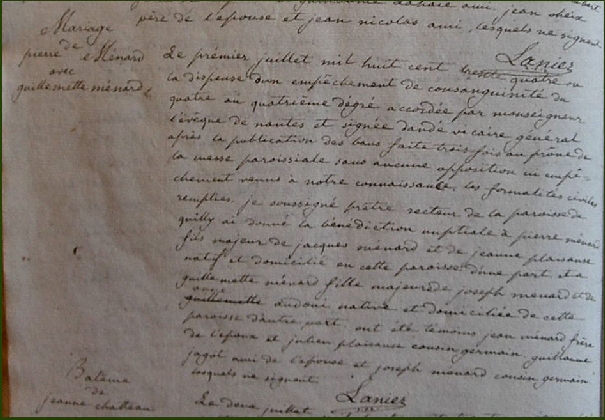 père de l'epouse et jean nicolas ami, lesquels ne signent
Lanier
Mariage
de
pierre Ménard
avec
guillemette ménard
Le premier juillet mil huit cent trente quatre vu
la dispense d'un empêchement de consanguinité du
quatre au quatrième dégré accordée par monseigneur
l'évêque de nantes et signée vicaire général
après la publication des bans faite trois fois au prone de
la messe paroissiale sans aucune opposition ni empê-
chement venus à notre connaissance, les formalités civiles
remplies. je soussigné prêtre recteur de la paroisse de
quilly ai donné la bénédiction nuptiale à pierre ménard
fils majeur de jacques ménard et de jeanne plaisanse
natif et domicilié en cette paroisse d'une part, et a
guillemette ménard fille majeure de joseph ménard et de
guillemette audoui native et domiciliée de cette
paroisse d'autre part, ont été témoins jean ménard frère
de l'epoux et julien plaisanse cousin germain, guillaume
ami de l'epouse et joseph ménard cousin germain
lesquels ne signent
Lanier
Batême
de
jeanne chatteau
Le deux juillet